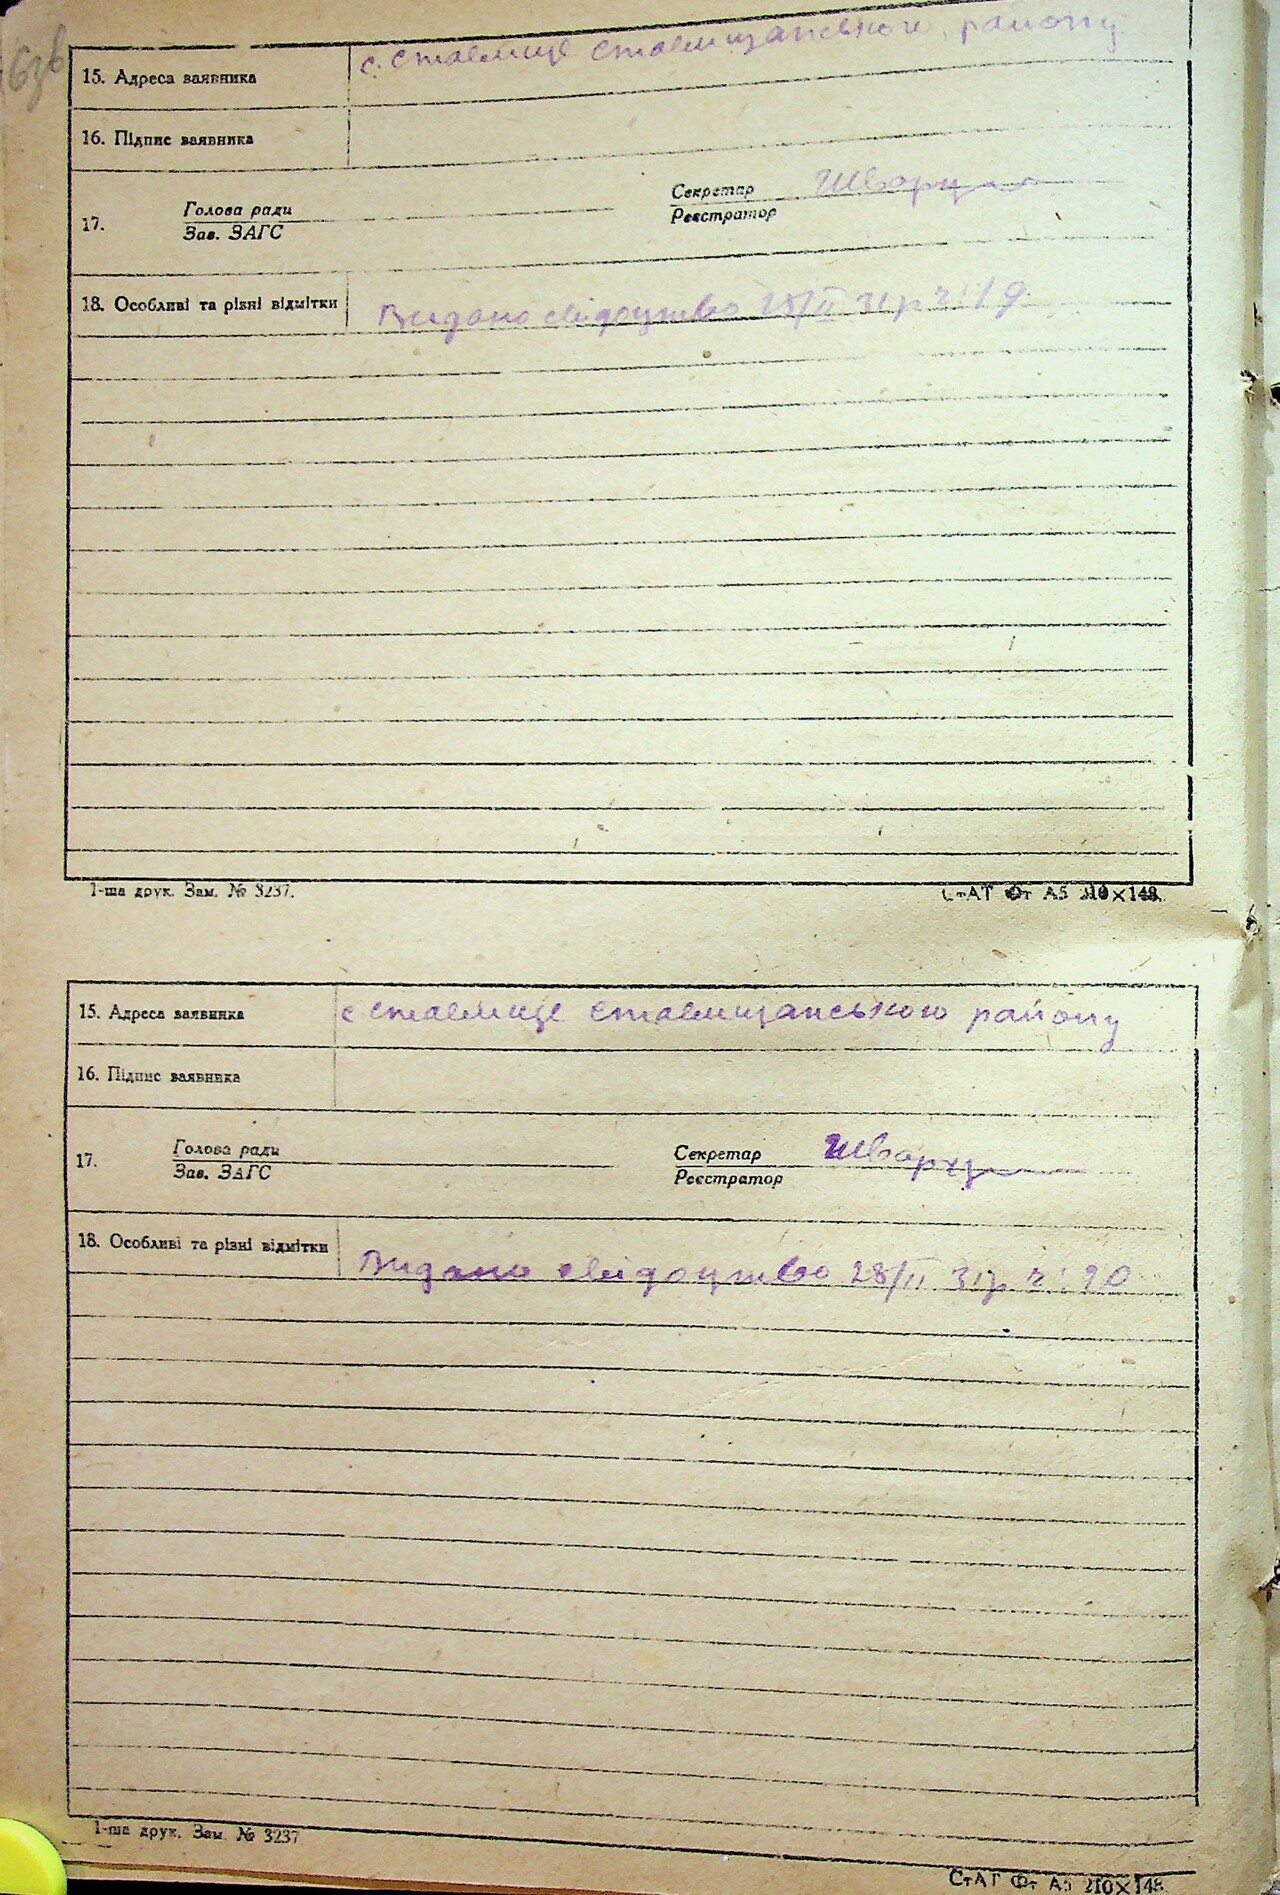 63в
15. Адреса заявника с. Ставище Ставищанського району
16. Підпис заявника
Секретар Шварц
17. Голова ради Реєстратор
Зав. ЗАГС
18. Особливі та різні відмітки Видано свідоцтво 28/II 31р ч: 19
1-ша друк. Зам. № 3237. СтАТ Фт А5 210×148.
15. Адреса заявника с Ставище Ставищанського району
16. Підпис заявника
17. Голова ради Секретар Шварц
Зав. ЗАГС Реєстратор
18. Особливі та різні відмітки Видано свідоцтво 28/II 31р ч: 20
1-ша друк. Зам. № 3237
СтАТ Фт А5 210×148.